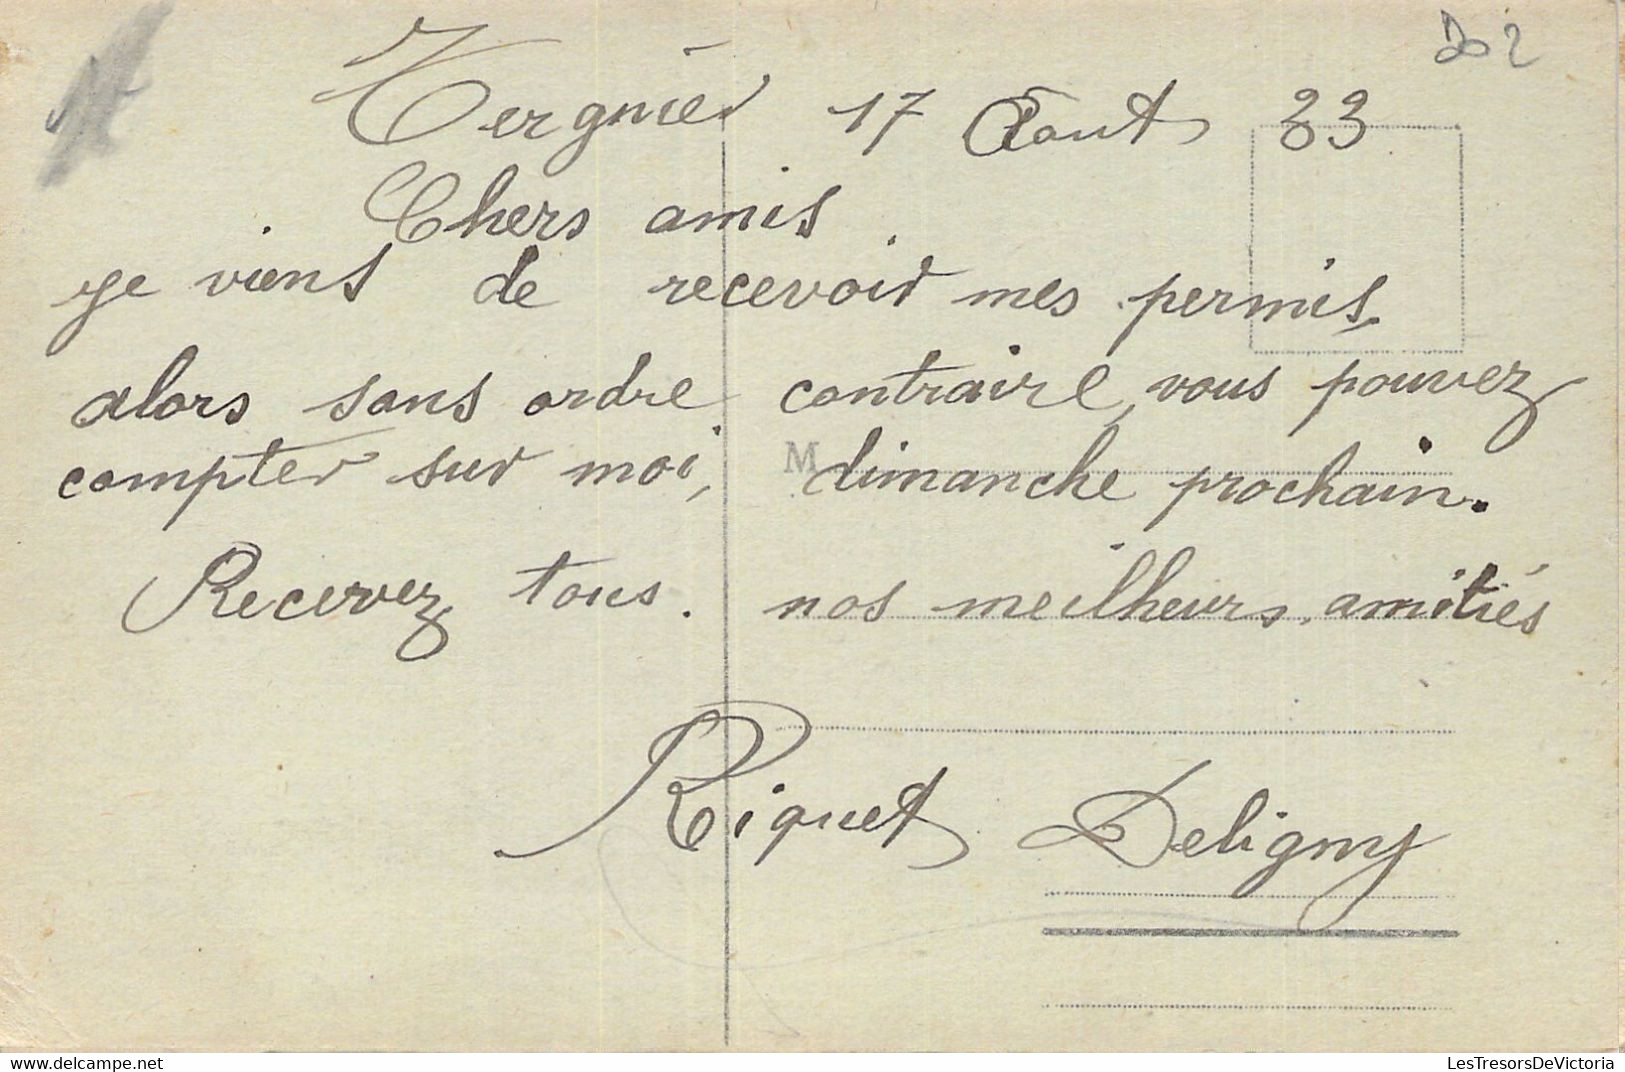 Tergnier 17 Aout 33
Chers amis
je viens de recevoir mes permis,
alors sans ordre contraire, vous pouvez
compter sur moi, dimanche prochain.
M
Recevez tous. nos meilheurs. amitiés
Riquet Deligny
LesTresorsDeVictoria